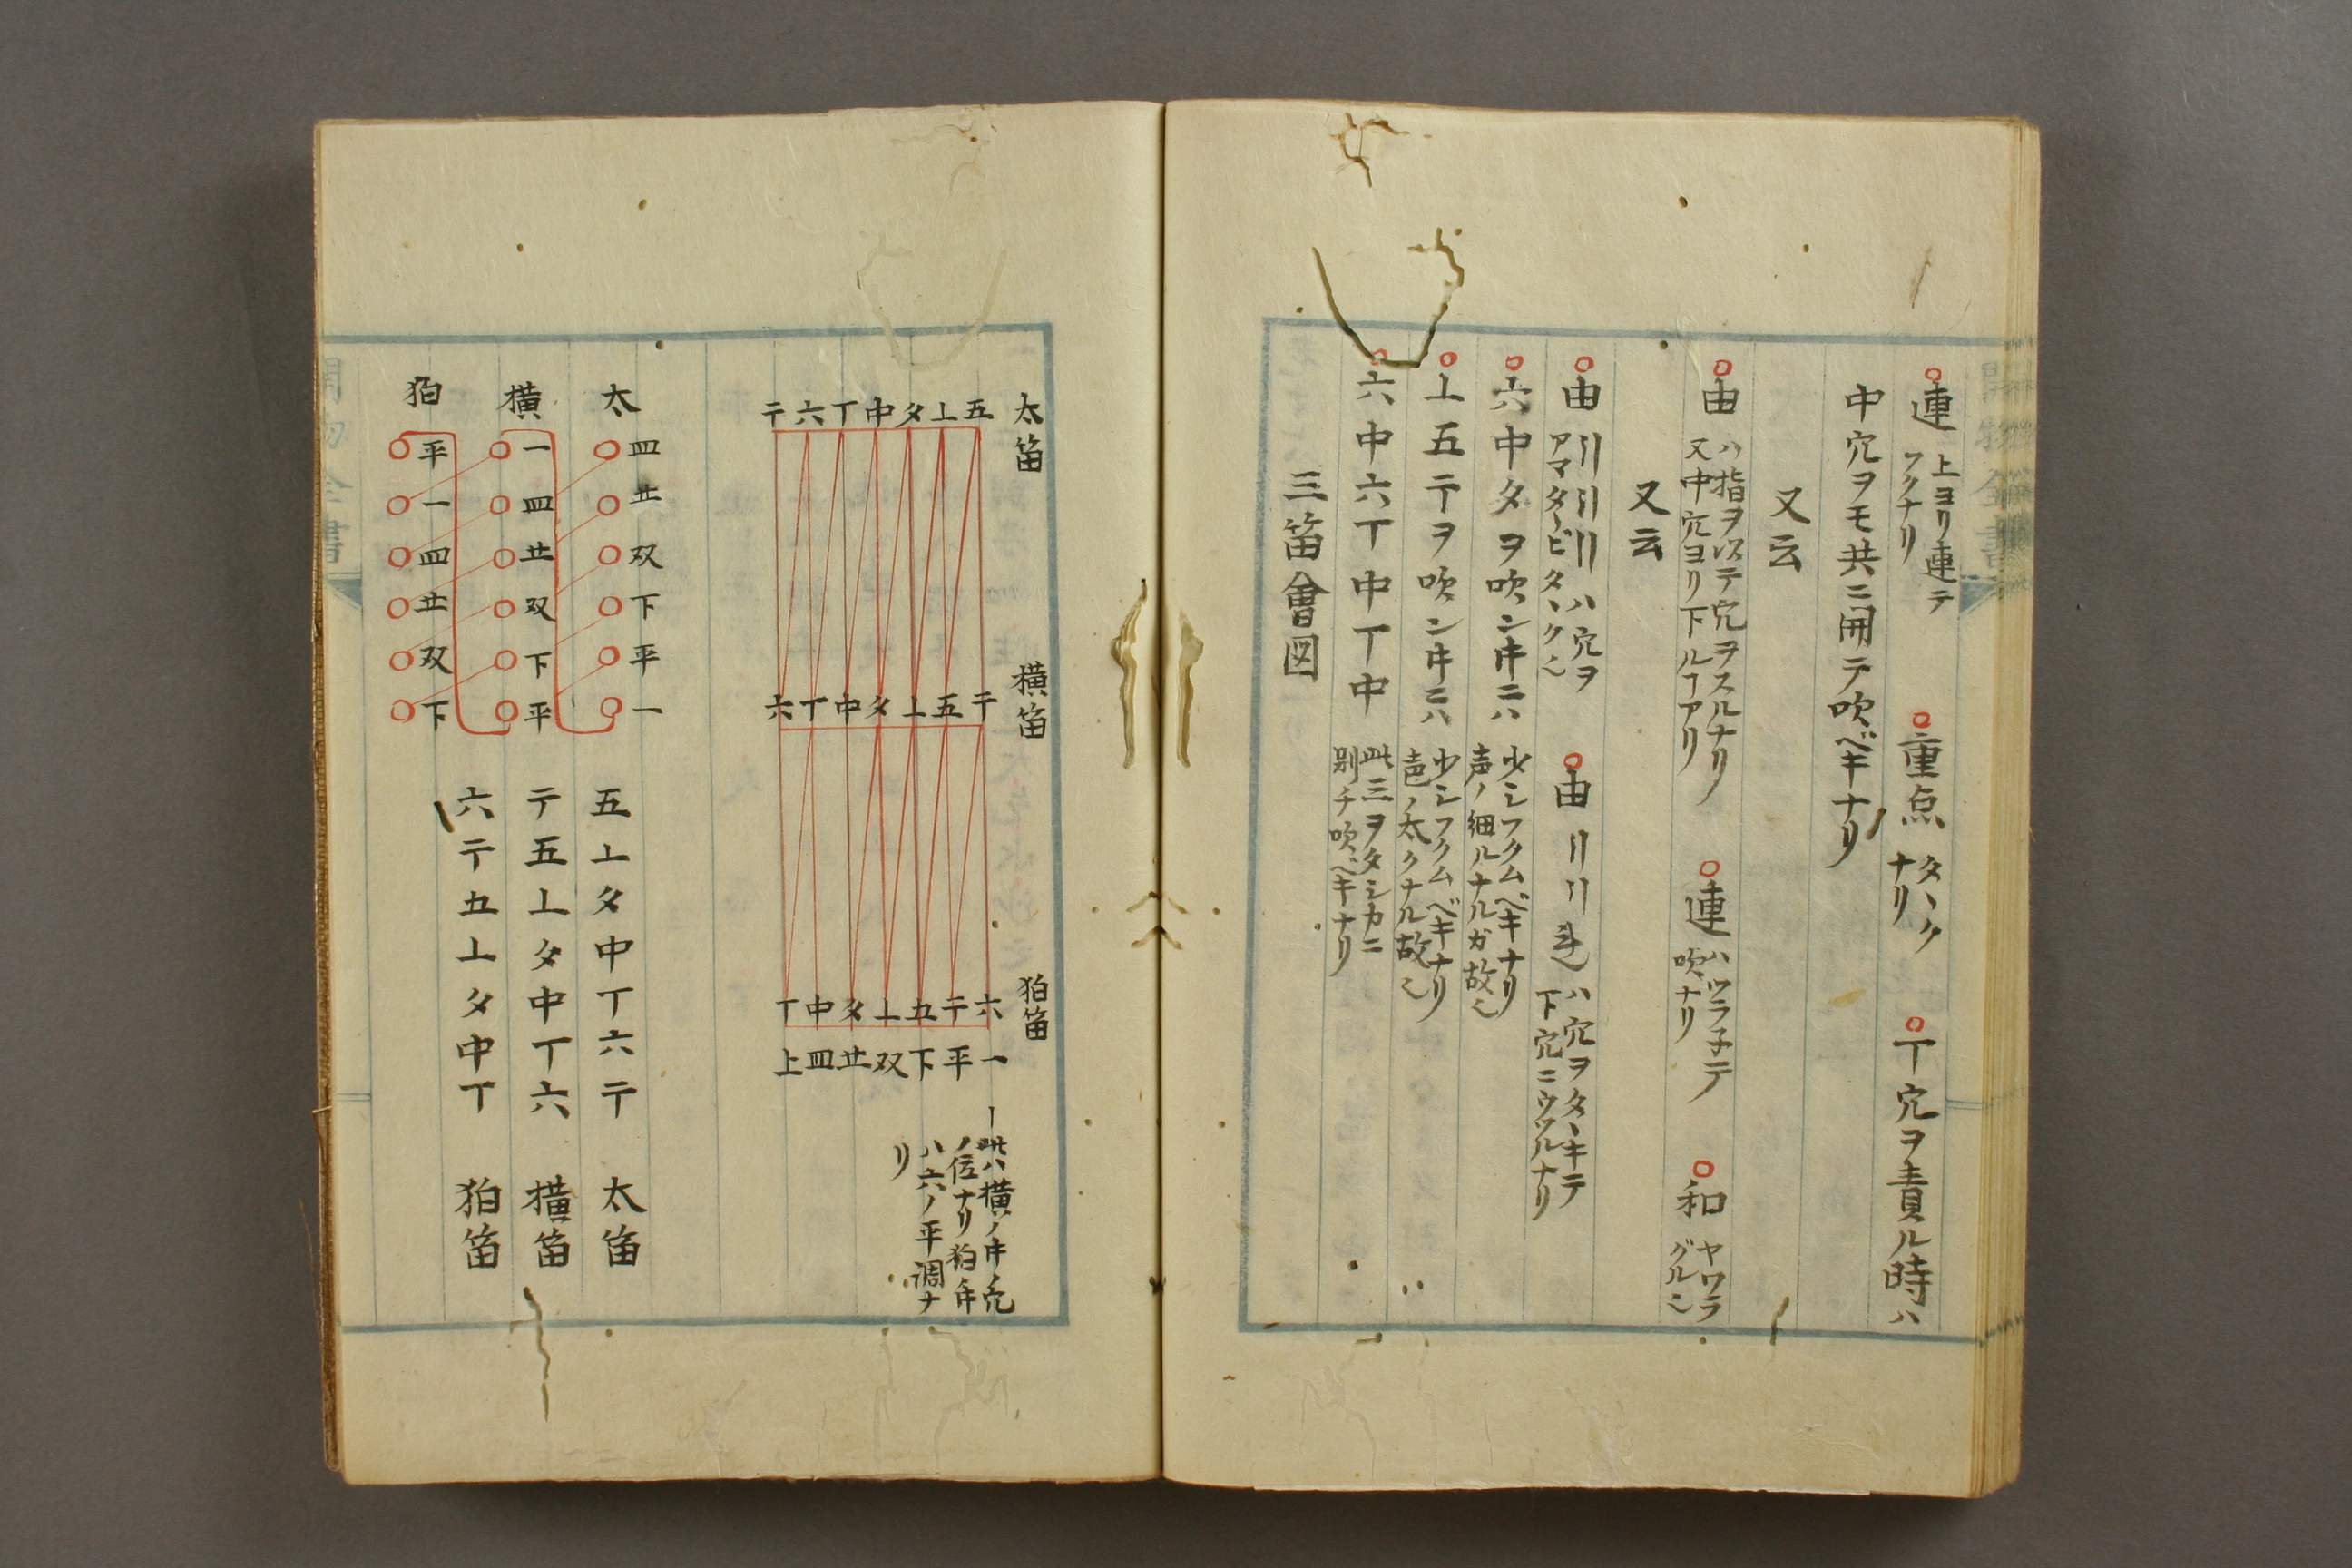 連 上ヨリ連テ
フクナリ
重点 タヽク
ナリ
丁穴ヲ責ル時ハ
中穴ヲモ共ニ開テ吹ベキナリ
又云
由 ハ指ヲ以テ穴ヲスルナリ
又中穴ヨリ下ルヿアリ
連 ハツラ子テ
吹ナリ
和 ヤワラ
グル也
又云
由 引引引 ハ穴ヲ
アマタヽビタヽク也
由 引引
ハ穴ヲタヽキテ
下穴ニウツルナリ
六中タヲ吹ン牛ニハ 少シフクムベキナリ
声ノ細ルナルガ故也
丄五テヲ吹ン牛ニハ 少シフクムベキナリ
声ノ太クナル故也
六中六丁中丁中 此三ヲタシカニ
別チ吹ベキナリ
三笛會図
太笛
五丄タ中丁六テ
横笛
テ五丄タ中丁六
狛笛
六テ五丄タ中丁
一平下双㐀四上
此ハ横ノ牛ノ穴
ハ六ノ平調ナ
リ
太 四㐀双下平一
五丄タ中丁六テ 太笛
横 一四㐀双下平
テ五丄タ中丁六 横笛
狛 平一四㐀双下
六テ五丄タ中丁 狛笛